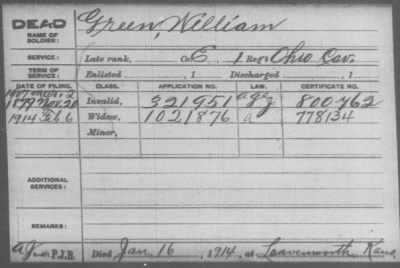 DEAD Green, William
NAME OF
SOLDIER:
SERVICE: Late rank, Co. E 1 Reg't Ohio Cav.
TERM OF
SERVICE: Enlisted , 1 Discharged , 1
DATE OF FILING. CLASS. APPLICATION NO. LAW. CERTIFICATE NO.
1907 Mar. 2
1879 Nov. 20 Invalid, 321951 age 800762
1914 Feb 6 Widow, 1021876 a 778134
Minor,
ADDITIONAL
SERVICES:
REMARKS:
P.J.B. Died Jan. 16 , 1914, at Leavenworth Kans.